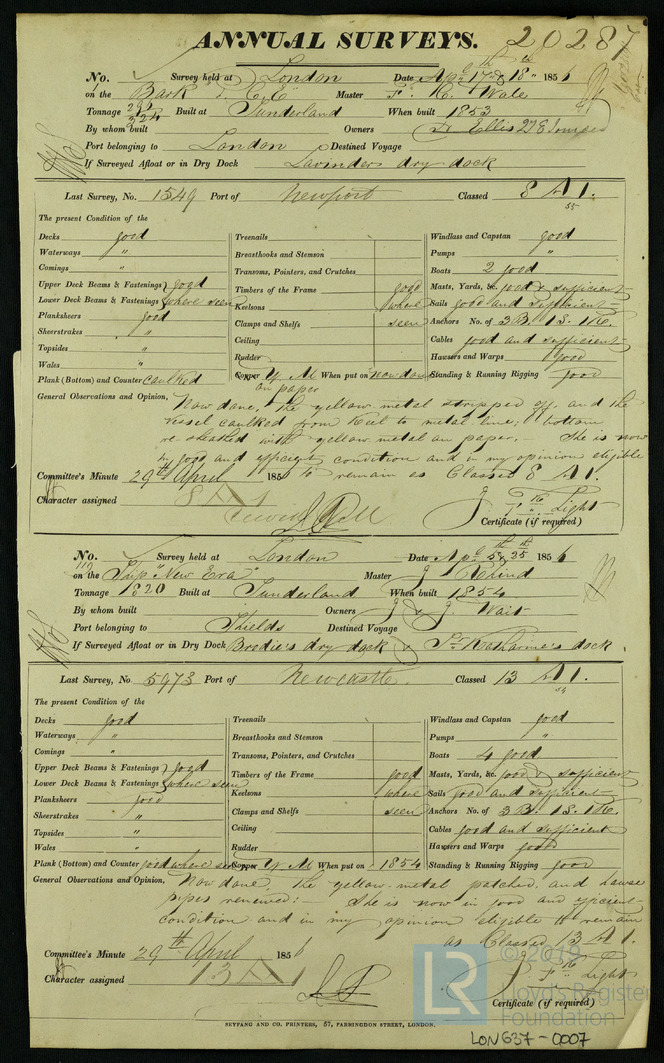 ANNUAL SURVEYS. 20287
No. Survey held at London Date Apl 17th & 18th 1856
on the Bark Master F. H. Wale
Tonnage 324 Built at Sunderland When built 1853
By whom built Owners
Port belonging to London Destined Voyage
If Surveyed Afloat or in Dry Dock Lavinders dry dock
Last Survey, No. 1549 Port of Newport Classed 8 A 1.
55
The present Condition of the
Decks good Treenails Windlass and Capstan good
Waterways " Breasthooks and Stemson Pumps "
Comings " Transoms, Pointers, and Crutches Boats 2 good
Upper Deck Beams & Fastenings good Timbers of the Frame good Masts, Yards, &c. good & sufficient
Lower Deck Beams & Fastenings where seen Keelsons where Sails good and sufficient
Planksheers good Clamps and Shelfs seen Anchors No. of 3 B. 1 S. 1 K.
Sheerstrakes " Ceiling Cables good and sufficient
Topsides " Rudder Hawsers and Warps good
Wales "
Plank (Bottom) and Counter caulked Copper Y. M. When put on now done Standing & Running Rigging good
on paper
General Observations and Opinion, Now done, the yellow metal stripped off, and the
vessel caulked from keel to metal line; bottom
re sheathed with yellow metal on paper. She is now
in good and efficient condition and in my opinion eligible
Committee's Minute 29th April 1856 to remain as Classed 8 A 1.
Character assigned 8 A 1 Light
Certificate (if required)
No. Survey held at London Date Apl 5th & 25th 1856
on the Ship "New Era" Master J. Rhind
Tonnage 1320 Built at Sunderland When built 1854
By whom built Owners J & J Wait
Port belonging to Shields Destined Voyage
If Surveyed Afloat or in Dry Dock Brodie's dry dock & St. Katharine's dock.
Last Survey, No 5973 Port of Newcastle Classed 13 A 1.
54
The present Condition of the
Decks good Treenails Windlass and Capstan good
Waterways " Breasthooks and Stemson Pumps "
Comings " Transoms, Pointers, and Crutches Boats 4 good
Upper Deck Beams & Fastenings good Timbers of the Frame good Masts, Yards, &c. good & sufficient
Lower Deck Beams & Fastenings where seen Keelsons where Sails good and sufficient
Planksheers good Clamps and Shelfs seen Anchors No. of 3 B. 1 S. 1 K.
Sheerstrakes " Ceiling Cables good and sufficient
Topsides " Hawsers and Warps good
Wales " Rudder
Plank (Bottom) and Counter good where seen Copper Y. M. When put on 1854 Standing & Running Rigging good
General Observations and Opinion, Now done, the yellow metal patched, and hawse
pipes renewed:- She is now in good and efficient
condition and in my opinion eligible to remain
as Classed 13 A 1.
Committee's Minute 29th April 1856
Character assigned 13 A 1 Light
Certificate (if required)
SEYFANG AND CO. PRINTERS, 57, FARRINGDON STREET, LONDON.
LR © 2019 Lloyd's Register Foundation
LON637-0007